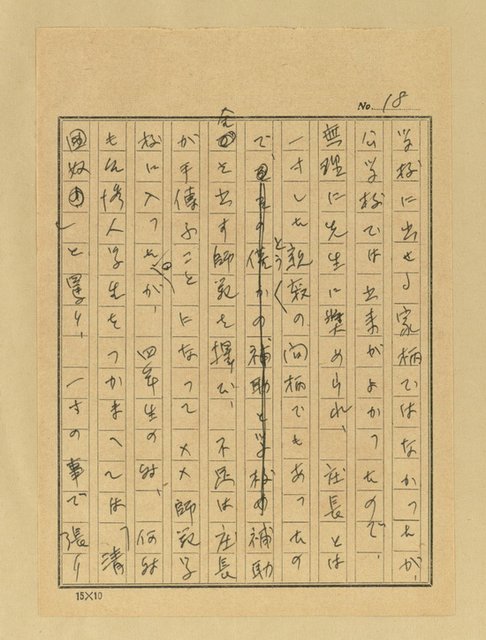 No. 18
学校に出せる家柄ではなかったが、
公学校では出来がよかったので、
無理に先生に奨められ、庄長とは
一寸した親類の間柄でもあったの
とうく
で、の僅かの補助と学校の補助
金を出す師範を擇び、不足は庄長
が手傳ふことになって××師範学
校に入ったが、四年生の時、何時
も人学生をつかまへては「清
国奴」と罵り、一寸の事で張り
15×10